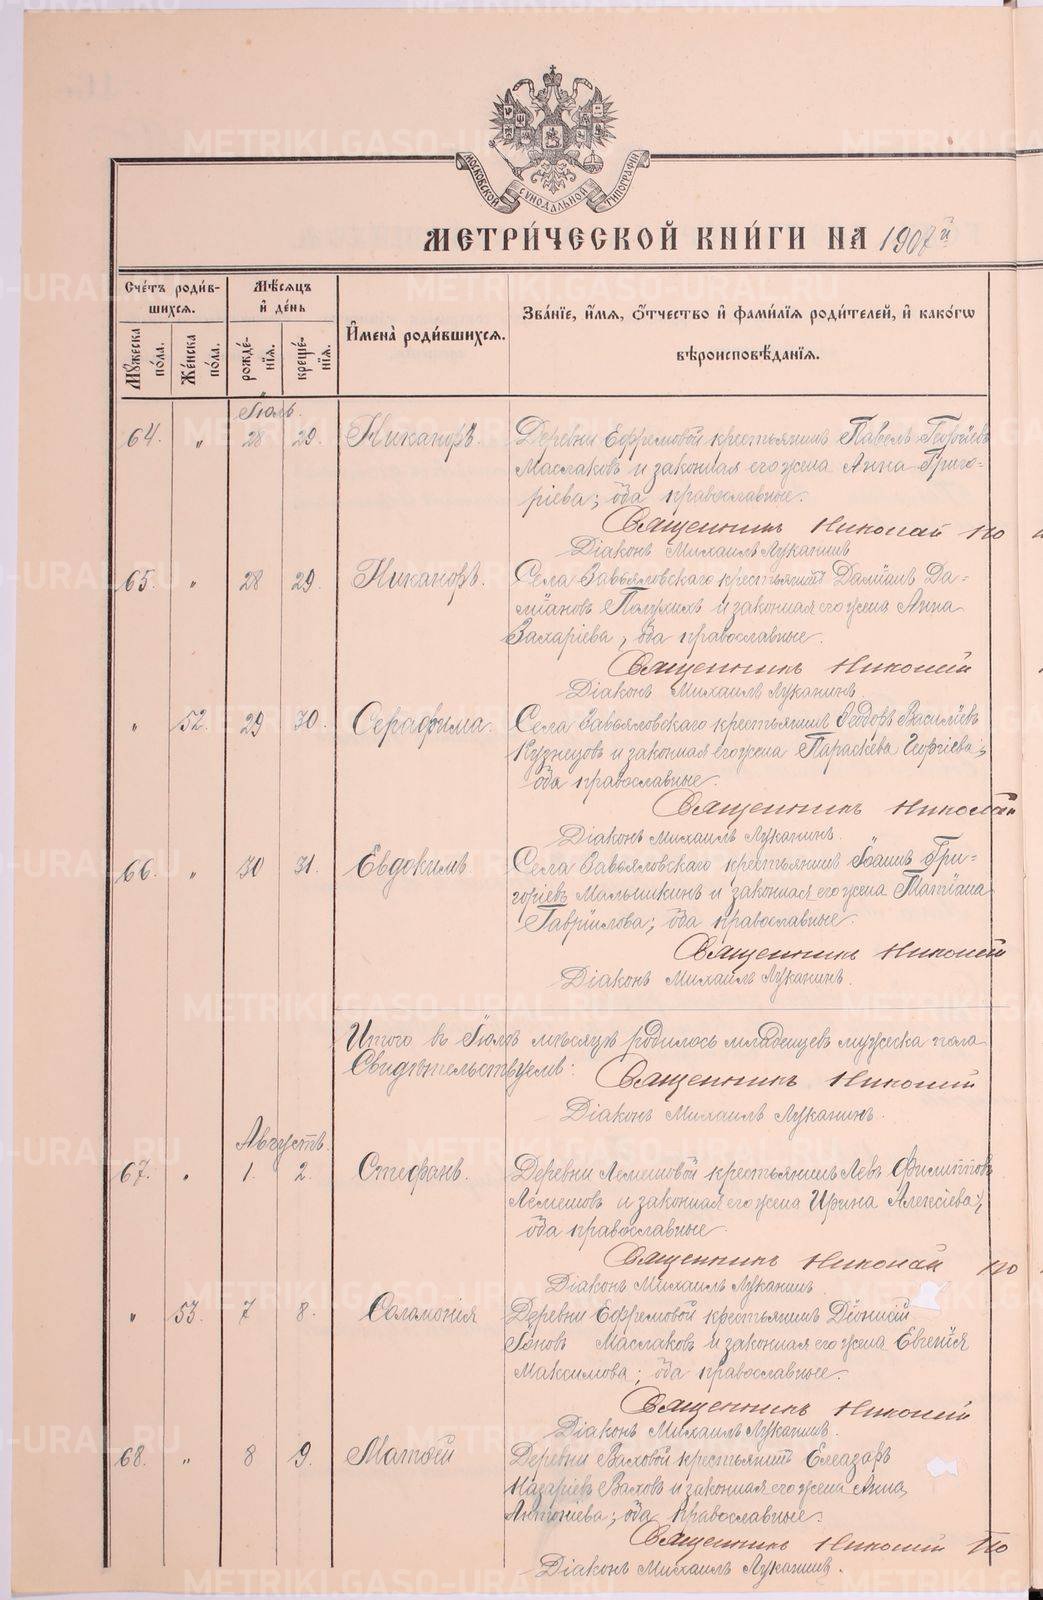 МОСКОВСКОЙ СѴНОДАЛЬНОЙ ТИПОГРАФІИ
МЕТРИ́ЧЕСКОЙ КНИ́ГИ НА 1907й
Сче́тъ роди́в-
шихсѧ.
Мѣ́сѧцъ
и҆ де́нь
И҆мена̀ роди́вшихсѧ.
Зва́нїе, и҆́мѧ, ѻ҆́тчество и҆ фами́лїѧ роди́телей, и҆ како́гѡ
вѣроисповѣ́данїѧ.
Мꙋ́жеска
по́ла.
Же́нска
по́ла.
рожде́-
нїѧ.
креще́-
нїѧ.
Іюль.
64. „ 28 29. Никаноръ. Деревни Ефремовой крестьянинъ Павелъ Георгіевъ
Маслаковъ и законная его жена Анна Григо-
ріева; оба православные.
Священникъ Николай По
Діаконъ Михаилъ Луканинъ
65. „ 28 29. Никаноръ. Села Завьяловскаго крестьянинъ Даміанъ Да-
міановъ Полухинъ и законная его жена Анна
Захаріева, оба православные.
Священникъ Николай
Діаконъ Михаилъ Луканинъ.
„ 52. 29 30. Серафима. Села Завьяловскаго крестьянинъ Ѳеодоръ Василіевъ
Кузнецовъ и законная его жена Параскева Георгіева;
оба православные.
Священникъ Николай
Діаконъ Михаилъ Луканинъ.
66. „ 30 31. Евдокимъ. Села Завьяловскаго крестьянинъ Іоаннъ Гри-
горіевъ Мальшкинъ и законная его жена Татіана
Гавріилова; оба православные.
Священникъ Николай
Діаконъ Михаилъ Луканинъ.
Итого въ Іюлѣ мѣсяцѣ родилось младенцевъ мужеска пола
Свидѣтельствуемъ: Священникъ Николай
Діаконъ Михаилъ Луканинъ.
Августъ.
67. „ 1. 2. Стефанъ. Деревни Лемешовой крестьянинъ Левъ Филипповъ
Лемешовъ и законная его жена Ирина Алексіева;
оба православные.
Священникъ Николай По
Діаконъ Михаилъ Луканинъ
„ 53. 7 8. Соломонія Деревни Ефремовой крестьянинъ Діонисій
Іоновъ Маслаковъ и законная его жена Евгенія
Максимова; оба православные.
Священникъ Николай
Діаконъ Михаилъ Луканинъ.
68. „ 8 9. Матѳей Деревни Ваховой крестьянинъ Елеазаръ
Назаріевъ Ваховъ и законная его жена Анна
Антоніева; оба православные.
Священникъ Николай По
Діаконъ Михаилъ Луканинъ.
METRIKI.GASO-URAL.RU